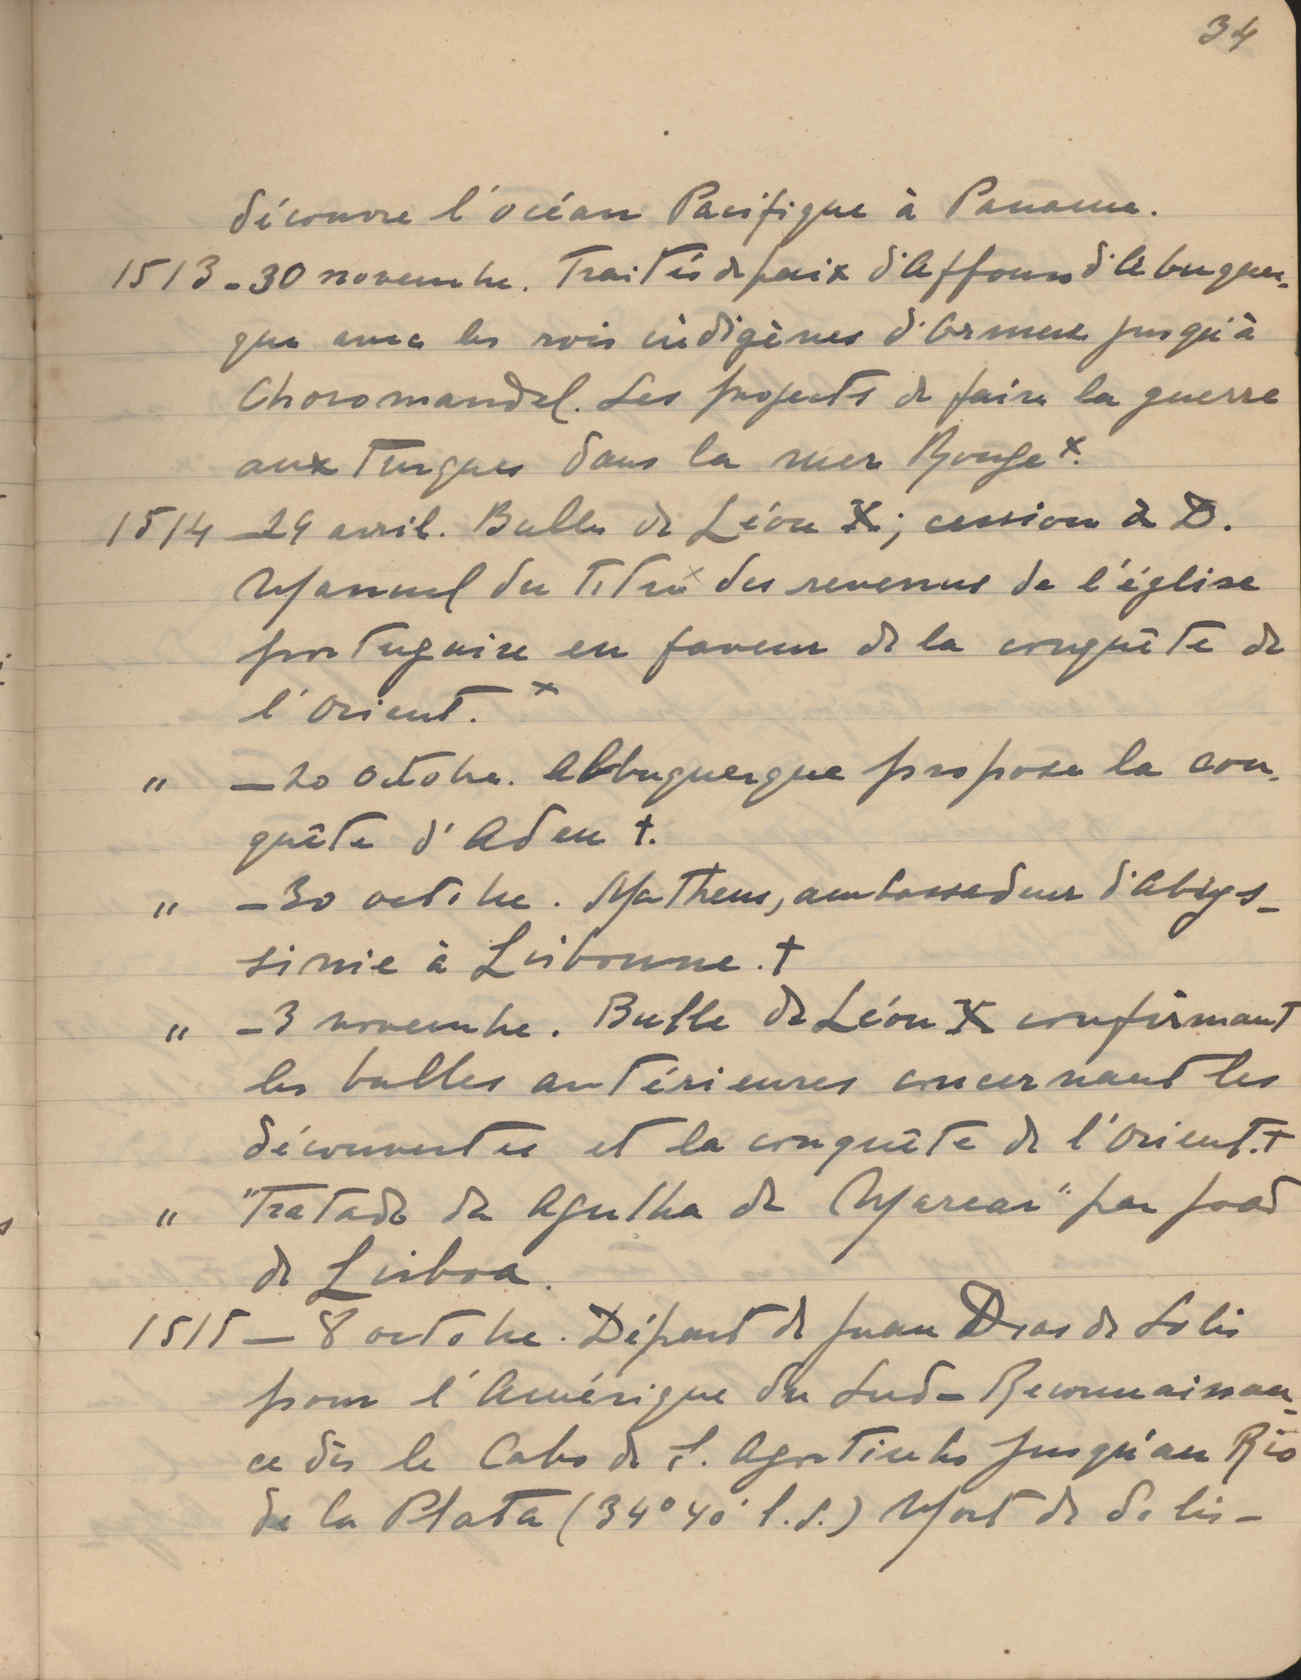 34
découvre l'océan Pacifique à Panama.
1513 - 30 novembre. Traités de paix d'Affonso d'Albuquer-
que avec les rois indigènes d'Ormuz jusqu'à
Choromandel. Les projects de faire la guerre
aux Turques dans la mer Rouge x.
1514 - 29 avril. Bulle de Léon X; cession à D.
Manuel du titre x des revenus de l'église
portugaise en faveur de la conquête de
l'Orient. x
" - 20 octobre. Albuquerque propose la con-
quête d'Aden †.
" - 30 octobre. Matheus, ambassadeur d'Abys-
sinie à Lisbonne. †
" - 3 novembre. Bulle de Léon X confirmant
les bulles antérieures concernant les
découvertes et la conquête de l'Orient. †
" "Tratado da Agulha de Marear" par João
de Lisboa.
1515 - 8 octobre. Départ de Juan Dias de Solis
pour l'Amérique du Sud - Reconnaissan-
ce dès le Cabo de S. Agostinho jusqu'au Rio
de la Plata (34° 40' l. S.) Mort de Solis -